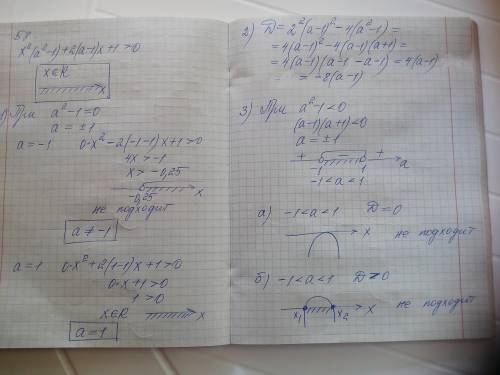 БУ
x²(a²-1)+2(a-1)x+1>0
x∈R
x
1) При a²-1=0
a=±1
a=-1 0·x²-2(-1-1)x+1>0
4x>-1
x>-0,25
-0,25 x
не подходит
a≠-1
a=1 0·x²+2(1-1)x+1>0
0·x+1>0
1>0
x∈R x
a=1
2) D=2²(a-1)²-4(a²-1)=
=4(a-1)²-4(a-1)(a+1)=
=4(a-1)(a-1-a-1)=4(a-1)
=-8(a-1)
3) При a²-1<0
(a-1)(a+1)<0
a=±1
+ - +
-1 1 a
-1<a<1
а) -1<a<1 D=0
x не подходит
б) -1<a<1 D>0
x₁ x₂ x не подходит